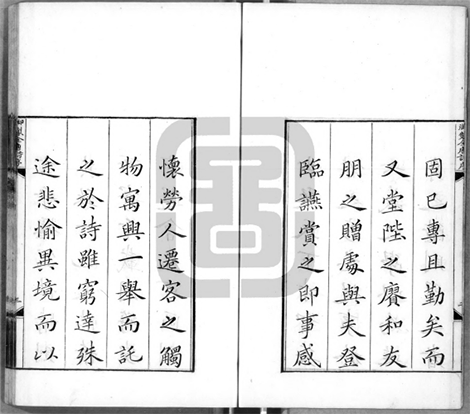 固已專且勤矣而
又堂陛之賡和友
朋之贈處與夫登
臨讌賞之即事感
懷勞人遷客之觸
物寓興一舉而託
之於詩雖窮達殊
途悲愉異境而以